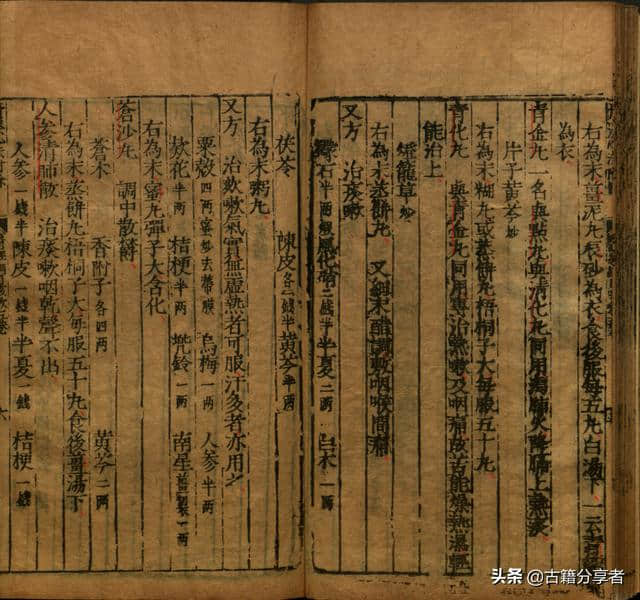 右為末薑泥丸衮砂為衣食後服每五丸白湯下一云青黛
為衣
青金丸 一名與點丸與清化丸同用瀉肺火降膈上熱痰
片子黃芩炒
右為末糊丸或蒸餅丸梧桐子大每服五十丸
青化丸 與青金丸同用專治熱嗽及咽痛故苦能燥熱濕輕
能治上
燈籠草炒
右為末蒸餅丸 又細末醋調敷咽喉間痛
又方 治痰嗽
礞石半兩煅 風化硝二錢半 半夏二兩 白术一兩
茯苓 陳皮各二錢半 黃芩半兩
右為末粥丸
又方 治欬嗽氣實無虛熱者可服汗多者亦用之
粟殼四兩蜜炒去帶膜 烏梅一兩 人參半兩
欬花半兩 桔梗半兩 兠鈴一兩 南星薑製一兩
右為末蜜丸彈子大含化
蒼沙丸 調中散鬱
蒼术 香附子各四兩 黃芩二兩
右為末蒸餅丸梧桐子大每服五十丸食後薑湯下
人參清肺散 治痰嗽咽乾聲不出
人參一錢半 陳皮一錢半 半夏一錢 桔梗一錢
头条 @古籍分享者